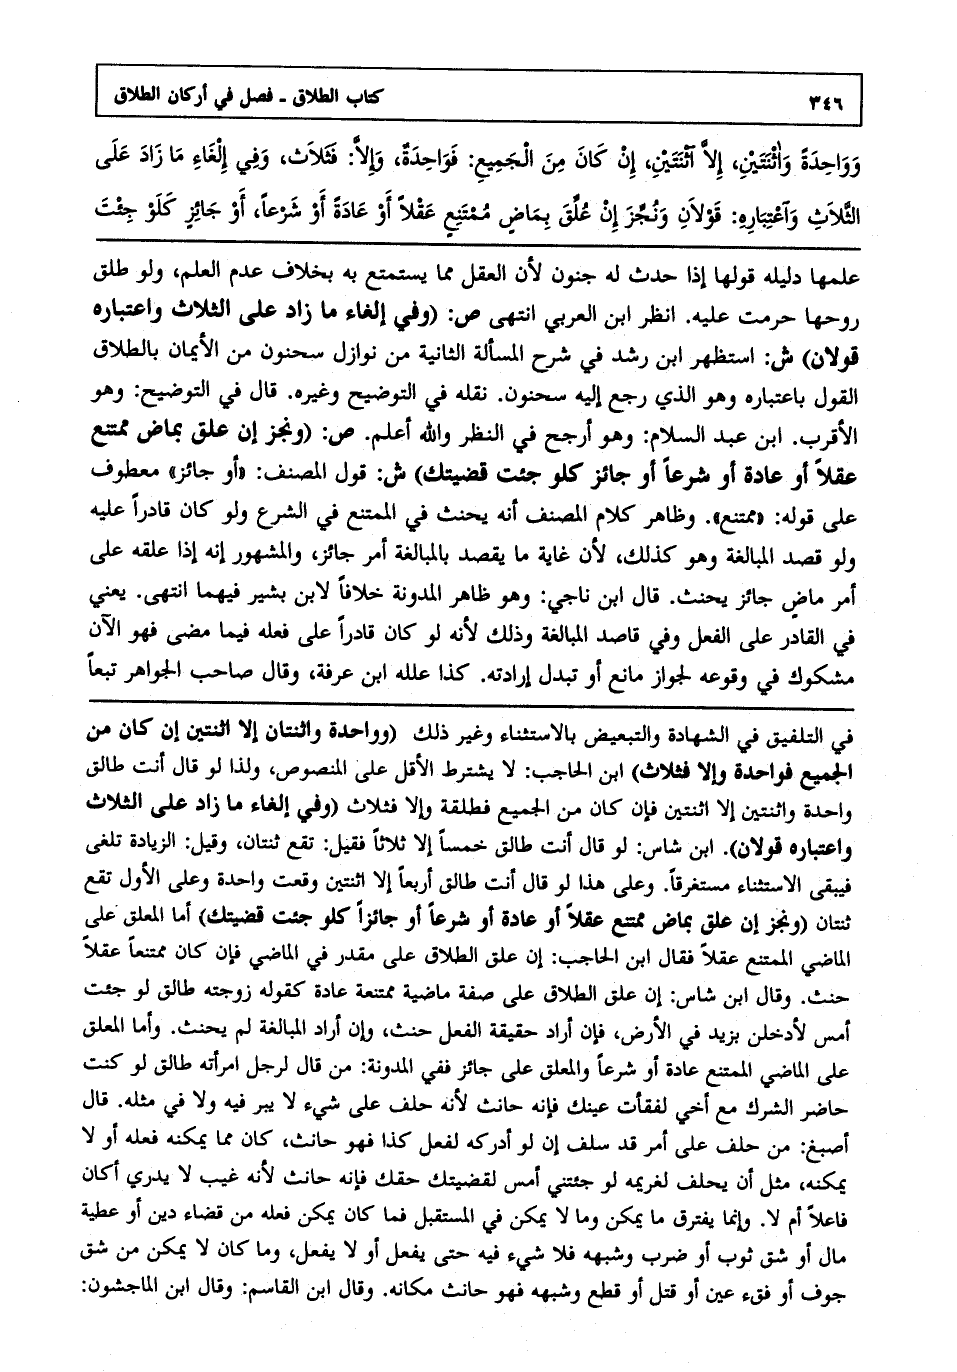 ٣٤٦ كتاب الطلاق ـ فصل في أركان الطلاق
وَوَاحِدَةً وَٱثْنَتَيْنِ، إِلاَّ ٱثْنَتَيْنِ، إِنْ كَانَ مِنَ الْجَمِيعِ: فَوَاحِدَةٌ، وَإِلاَّ: فَثَلاَث، وَفِي إِلْغَاءِ مَا زَادَ عَلَى
الثَّلاَثِ وَٱعْتِبَارِهِ: قَوْلاَنِ وَنُجِّزَ إِنْ عُلِّقَ بِمَاضٍ مُمْتَنِعٍ عَقْلاً أَوْ عَادَةً أَوْ شَرْعاً، أَوْ جَائِزٍ كَلَوْ جِئْتَ
علمها دليله قولها إذا حدث له جنون لأن العقل مما يستمتع به بخلاف عدم العلم، ولو طلق
روحها حرمت عليه. انظر ابن العربي انتهى ص: (وفي إلغاء ما زاد على الثلاث واعتباره
قولان) ش: استظهر ابن رشد في شرح المسألة الثانية من نوازل سحنون من الأيمان بالطلاق
القول باعتباره وهو الذي رجع إليه سحنون. نقله في التوضيح وغيره. قال في التوضيح: وهو
الأقرب. ابن عبد السلام: وهو أرجح في النظر والله أعلم. ص: (ونجز إن علق بماض ممتنع
عقلاً أو عادة أو شرعاً أو جائز كلو جئت قضيتك) ش: قول المصنف: «أو جائز» معطوف
على قوله: «ممتنع». وظاهر كلام المصنف أنه يحنث في الممتنع في الشرع ولو كان قادراً عليه
ولو قصد المبالغة وهو كذلك، لأن غاية ما يقصد بالمبالغة أمر جائز، والمشهور إنه إذا علقه على
أمر ماضٍ جائز يحنث. قال ابن ناجي: وهو ظاهر المدونة خلافاً لابن بشير فيهما انتهى. يعني
في القادر على الفعل وفي قاصد المبالغة وذلك لأنه لو كان قادراً على فعله فيما مضى فهو الآن
مشكوك في وقوعه لجواز مانع أو تبدل إرادته. كذا علله ابن عرفة، وقال صاحب الجواهر تبعاً
في التلفيق في الشهادة والتبعيض بالاستثناء وغير ذلك (وواحدة واثنتان إلا اثنتين إن كان من
الجميع فواحدة وإلا فثلاث) ابن الحاجب: لا يشترط الأقل على المنصوص، ولذا لو قال أنت طالق
واحدة واثنتين إلا اثنتين فإن كان من الجميع فطلقة وإلا فثلاث (وفي إلغاء ما زاد على الثلاث
واعتباره قولان). ابن شاس: لو قال أنت طالق خمساً إلا ثلاثاً فقيل: تقع ثنتان، وقيل: الزيادة تلغى
فيبقى الاستثناء مستغرقاً. وعلى هذا لو قال أنت طالق أربعاً إلا اثنتين وقعت واحدة وعلى الأول تقع
ثنتان (ونجز إن علق بماض ممتنع عقلاً أو عادة أو شرعاً أو جائزاً كلو جئت قضيتك) أما المعلق على
الماضي الممتنع عقلاً فقال ابن الحاجب: إن علق الطلاق على مقدر في الماضي فإن كان ممتنعاً عقلاً
حنث. وقال ابن شاس: إن علق الطلاق على صفة ماضية ممتنعة عادة كقوله زوجته طالق لو جئت
أمس لأدخلن بزيد في الأرض، فإن أراد حقيقة الفعل حنث، وإن أراد المبالغة لم يحنث. وأما المعلق
على الماضي الممتنع عادة أو شرعاً والمعلق على جائز ففي المدونة: من قال لرجل امرأته طالق لو كنت
حاضر الشرك مع أخي لفقأت عينك فإنه حانث لأنه حلف على شيء لا يبر فيه ولا في مثله. قال
أصبغ: من حلف على أمر قد سلف إن لو أدركه لفعل كذا فهو حانث، كان مما يمكنه فعله أو لا
يمكنه، مثل أن يحلف لغريمه لو جئتني أمس لقضيتك حقك فإنه حانث لأنه غيب لا يدري أكان
فاعلاً أم لا. وإنما يفترق ما يمكن وما لا يمكن في المستقبل فما كان يمكن فعله من قضاء دين أو عطية
مال أو شق ثوب أو ضرب وشبهه فلا شيء فيه حتى يفعل أو لا يفعل، وما كان لا يمكن من شق
جوف أو فقء عين أو قتل أو قطع وشبهه فهو حانث مكانه. وقال ابن القاسم: وقال ابن الماجشون: